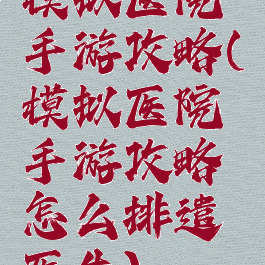 模拟医院
手游攻略(
模拟医院
手游攻略
怎么排遣